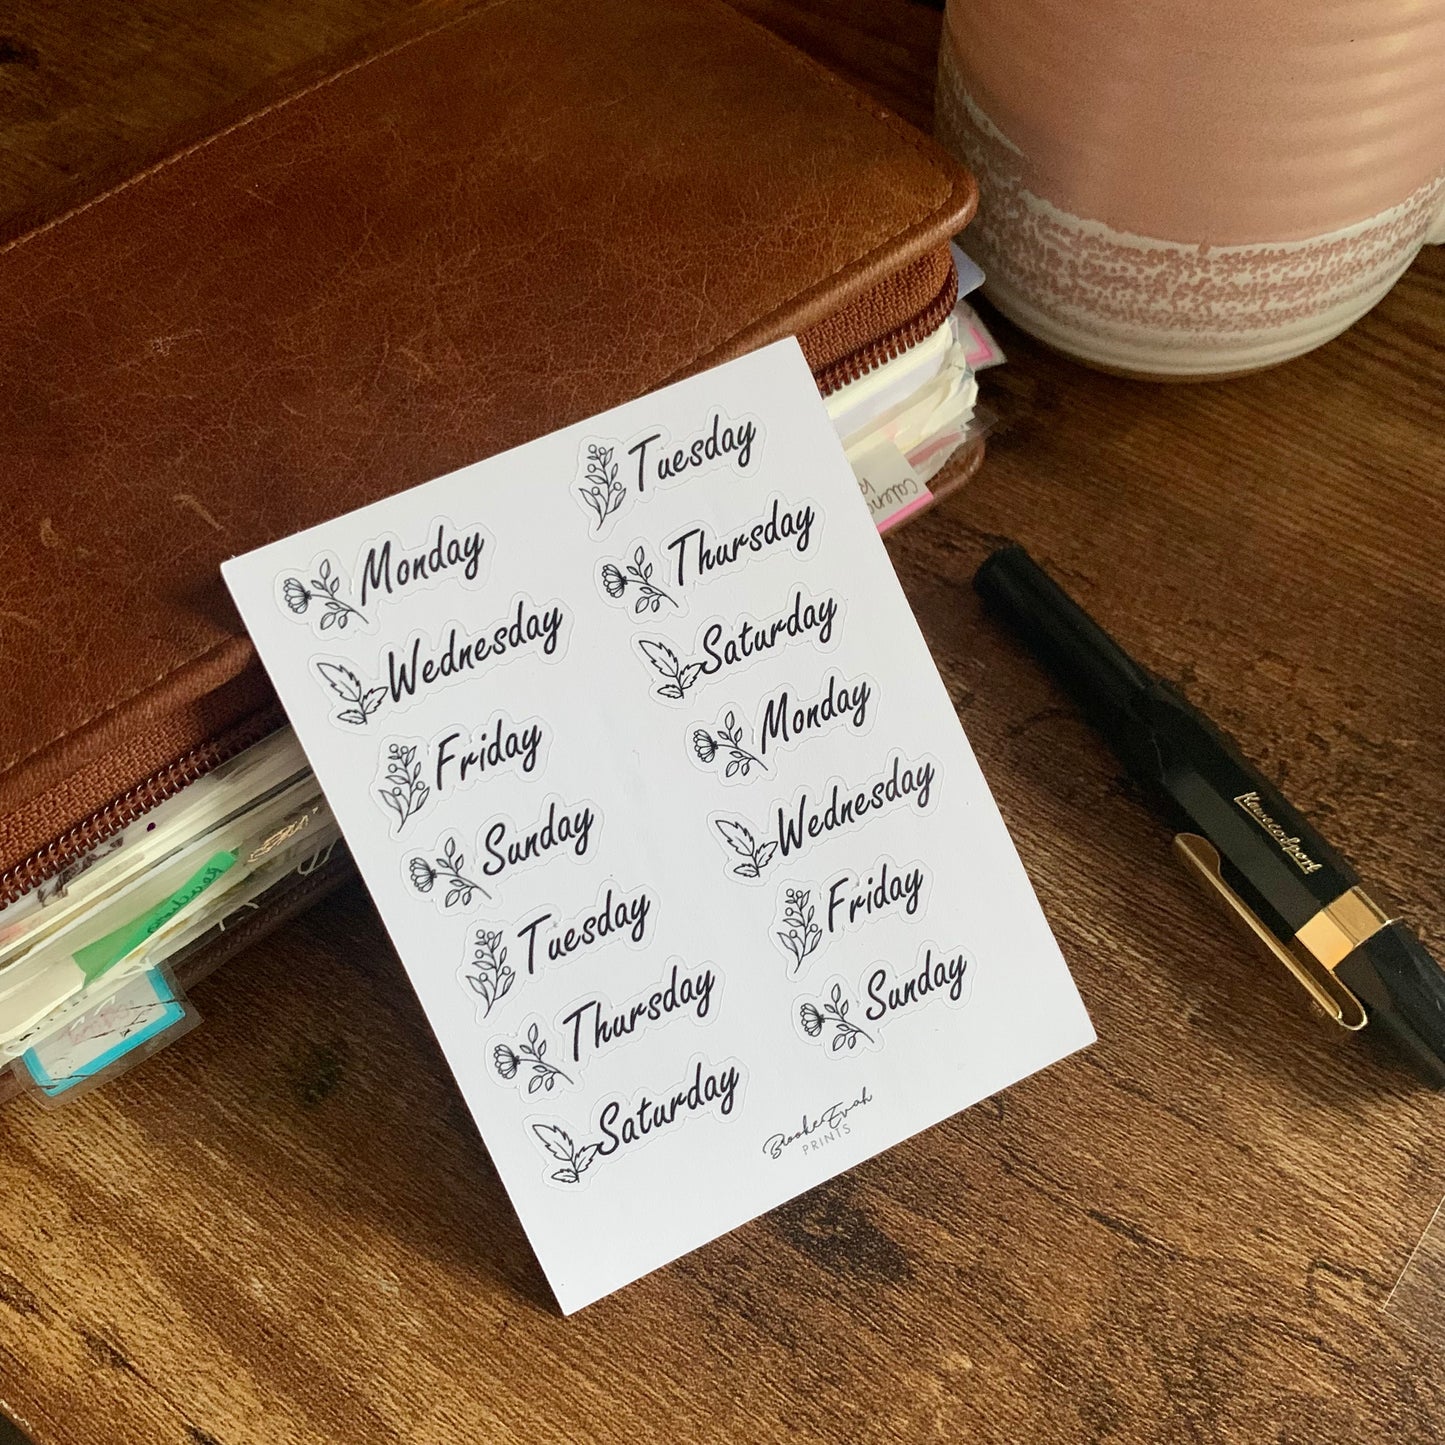 Monday
Wednesday
Friday
Sunday
Tuesday
Thursday
Saturday
Tuesday
Thursday
Saturday
Monday
Wednesday
Friday
Sunday
BrookeEvah
PRINTS
KawecoSport